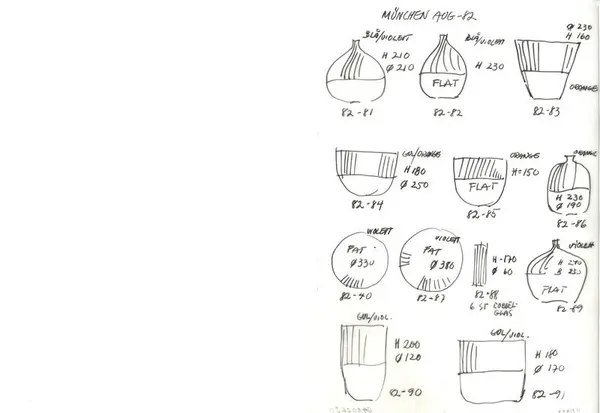 MÜNCHEN AUG-82
BLÅ/VIOLETT
H 210
Ø 210
82-81
BLÅ/VIOLETT
H 230
FLAT
82-82
Ø 230
H 160
ORANGE
82-83
GUL/ORANGE
H 180
Ø 250
82-84
ORANGE
H=150
FLAT
82-85
ORANGE
H 230
Ø 190
82-86
VIOLETT
FAT
Ø 330
82-40
VIOLETT
FAT
Ø 380
82-87
H-170
Ø 60
82-88
6 ST
GLAS
VIOLETT
FLAT
82-89
GUL/VIOL.
H 200
Ø 120
82-90
GUL/VIOL.
H 180
Ø 170
82-91